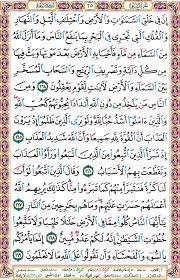 ٢٥
إِنَّ فِي خَلْقِ السَّمَٰوَٰتِ وَالْأَرْضِ وَاخْتِلَٰفِ اللَّيْلِ وَالنَّهَارِ
وَالْفُلْكِ الَّتِي تَجْرِي فِي الْبَحْرِ بِمَا يَنفَعُ النَّاسَ وَمَا أَنزَلَ اللَّهُ
مِنَ السَّمَاءِ مِن مَّاءٍ فَأَحْيَا بِهِ الْأَرْضَ بَعْدَ مَوْتِهَا وَبَثَّ فِيهَا
مِن كُلِّ دَابَّةٍ وَتَصْرِيفِ الرِّيَٰحِ وَالسَّحَابِ الْمُسَخَّرِ
بَيْنَ السَّمَاءِ وَالْأَرْضِ لَءَايَٰتٍ لِّقَوْمٍ يَعْقِلُونَ ١٦٤ وَمِنَ
النَّاسِ مَن يَتَّخِذُ مِن دُونِ اللَّهِ أَندَادًا يُحِبُّونَهُمْ كَحُبِّ اللَّهِ
وَالَّذِينَ ءَامَنُوا أَشَدُّ حُبًّا لِّلَّهِ وَلَوْ يَرَى الَّذِينَ ظَلَمُوا إِذْ يَرَوْنَ
الْعَذَابَ أَنَّ الْقُوَّةَ لِلَّهِ جَمِيعًا وَأَنَّ اللَّهَ شَدِيدُ الْعَذَابِ ١٦٥
إِذْ تَبَرَّأَ الَّذِينَ اتُّبِعُوا مِنَ الَّذِينَ اتَّبَعُوا وَرَأَوُا الْعَذَابَ
وَتَقَطَّعَتْ بِهِمُ الْأَسْبَابُ ١٦٦ وَقَالَ الَّذِينَ اتَّبَعُوا لَوْ أَنَّ
لَنَا كَرَّةً فَنَتَبَرَّأَ مِنْهُمْ كَمَا تَبَرَّءُوا مِنَّا كَذَٰلِكَ يُرِيهِمُ اللَّهُ
أَعْمَٰلَهُمْ حَسَرَٰتٍ عَلَيْهِمْ وَمَا هُم بِخَٰرِجِينَ مِنَ النَّارِ ١٦٧
يَٰأَيُّهَا النَّاسُ كُلُوا مِمَّا فِي الْأَرْضِ حَلَٰلًا طَيِّبًا وَلَا تَتَّبِعُوا
خُطُوَٰتِ الشَّيْطَٰنِ إِنَّهُ لَكُمْ عَدُوٌّ مُّبِينٌ ١٦٨ إِنَّمَا يَأْمُرُكُم
بِالسُّوءِ وَالْفَحْشَاءِ وَأَن تَقُولُوا عَلَى اللَّهِ مَا لَا تَعْلَمُونَ ١٦٩